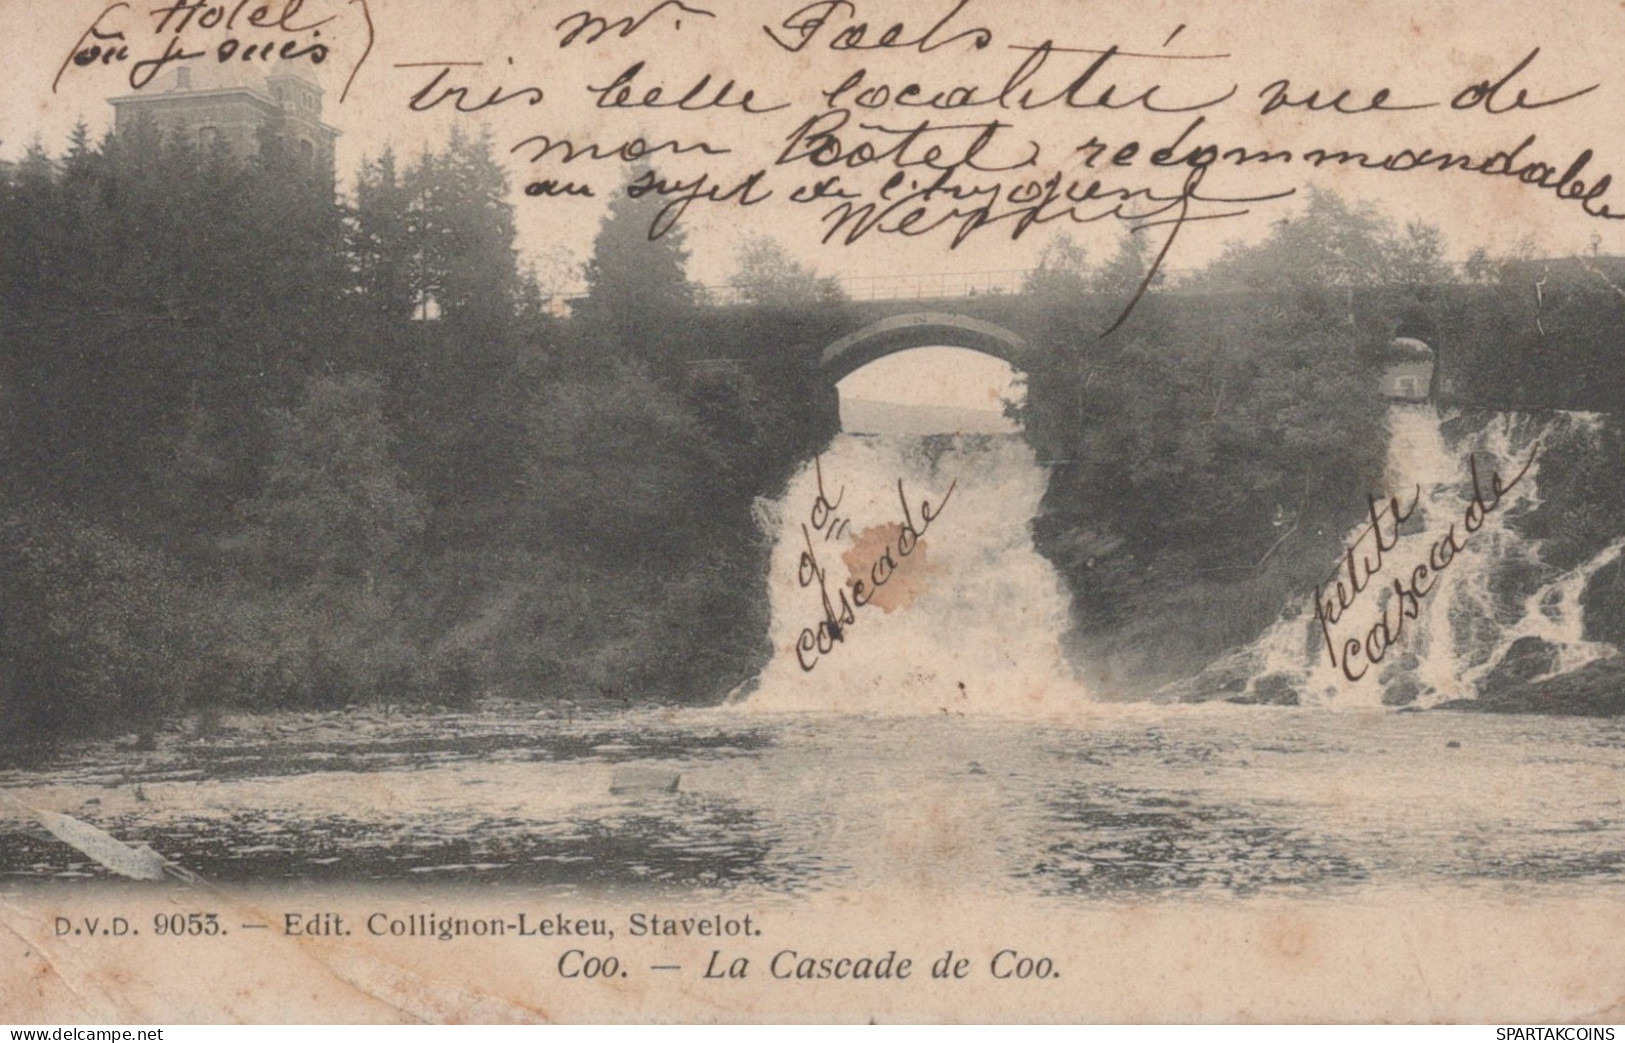 Hotel
où je suis
Mr. Foels
très belle localité vue de
mon Hôtel recommandable
au sujet de l'hygiène
gd
cascade
petite
cascade
D.V.D. 9053. — Edit. Collignon-Lekeu, Stavelot.
Coo. — La Cascade de Coo.
https://www.delcampe.net
SPARTAKCOINS